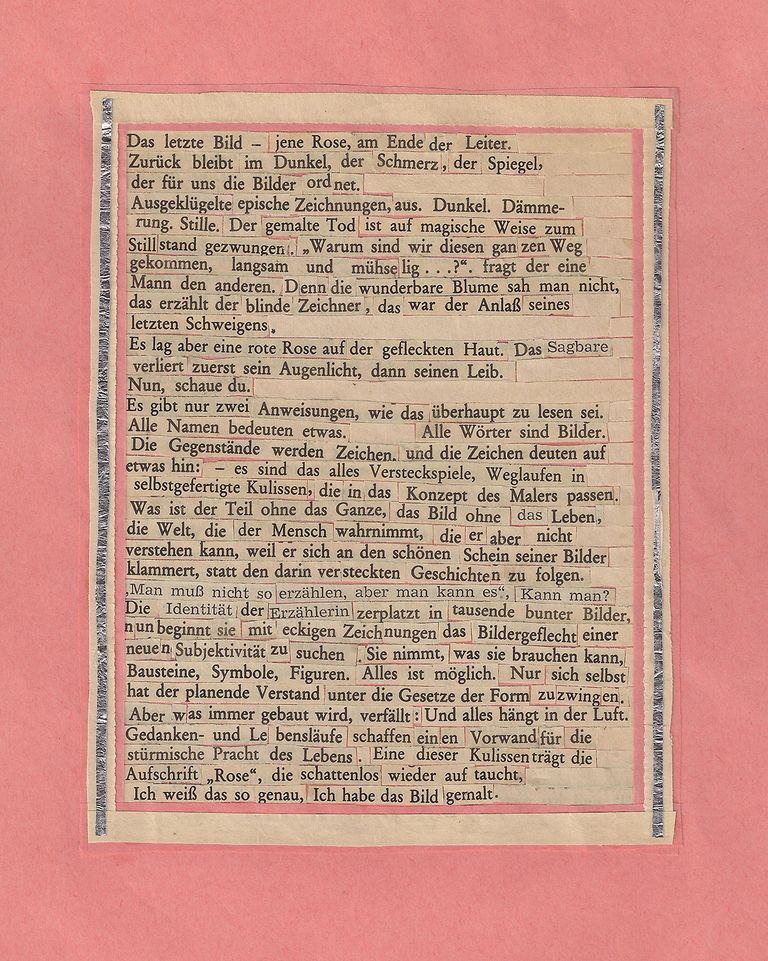 Das letzte Bild – jene Rose, am Ende der Leiter.
Zurück bleibt im Dunkel, der Schmerz, der Spiegel,
der für uns die Bilder ordnet.
Ausgeklügelte epische Zeichnungen, aus. Dunkel. Dämme-
rung. Stille. Der gemalte Tod ist auf magische Weise zum
Stillstand gezwungen. „Warum sind wir diesen ganzen Weg
gekommen, langsam und mühselig . . .?“. fragt der eine
Mann den anderen. Denn die wunderbare Blume sah man nicht,
das erzählt der blinde Zeichner, das war der Anlaß seines
letzten Schweigens.
Es lag aber eine rote Rose auf der gefleckten Haut. Das Sagbare
verliert zuerst sein Augenlicht, dann seinen Leib.
Nun, schaue du.
Es gibt nur zwei Anweisungen, wie das überhaupt zu lesen sei.
Alle Namen bedeuten etwas. Alle Wörter sind Bilder.
Die Gegenstände werden Zeichen. und die Zeichen deuten auf
etwas hin: – es sind das alles Versteckspiele, Weglaufen in
selbstgefertigte Kulissen, die in das Konzept des Malers passen.
Was ist der Teil ohne das Ganze, das Bild ohne das Leben,
die Welt, die der Mensch wahrnimmt, die er aber nicht
verstehen kann, weil er sich an den schönen Schein seiner Bilder
klammert, statt den darin versteckten Geschichten zu folgen.
„Man muß nicht so erzählen, aber man kann es“, Kann man?
Die Identität der Erzählerin zerplatzt in tausende bunter Bilder,
nun beginnt sie mit eckigen Zeichnungen das Bildergeflecht einer
neuen Subjektivität zu suchen . Sie nimmt, was sie brauchen kann,
Bausteine, Symbole, Figuren. Alles ist möglich. Nur sich selbst
hat der planende Verstand unter die Gesetze der Form zuzwingen.
Aber was immer gebaut wird, verfällt: Und alles hängt in der Luft.
Gedanken- und Lebensläufe schaffen einen Vorwand für die
stürmische Pracht des Lebens . Eine dieser Kulissen trägt die
Aufschrift „Rose“, die schattenlos wieder auf taucht,
Ich weiß das so genau, Ich habe das Bild gemalt.